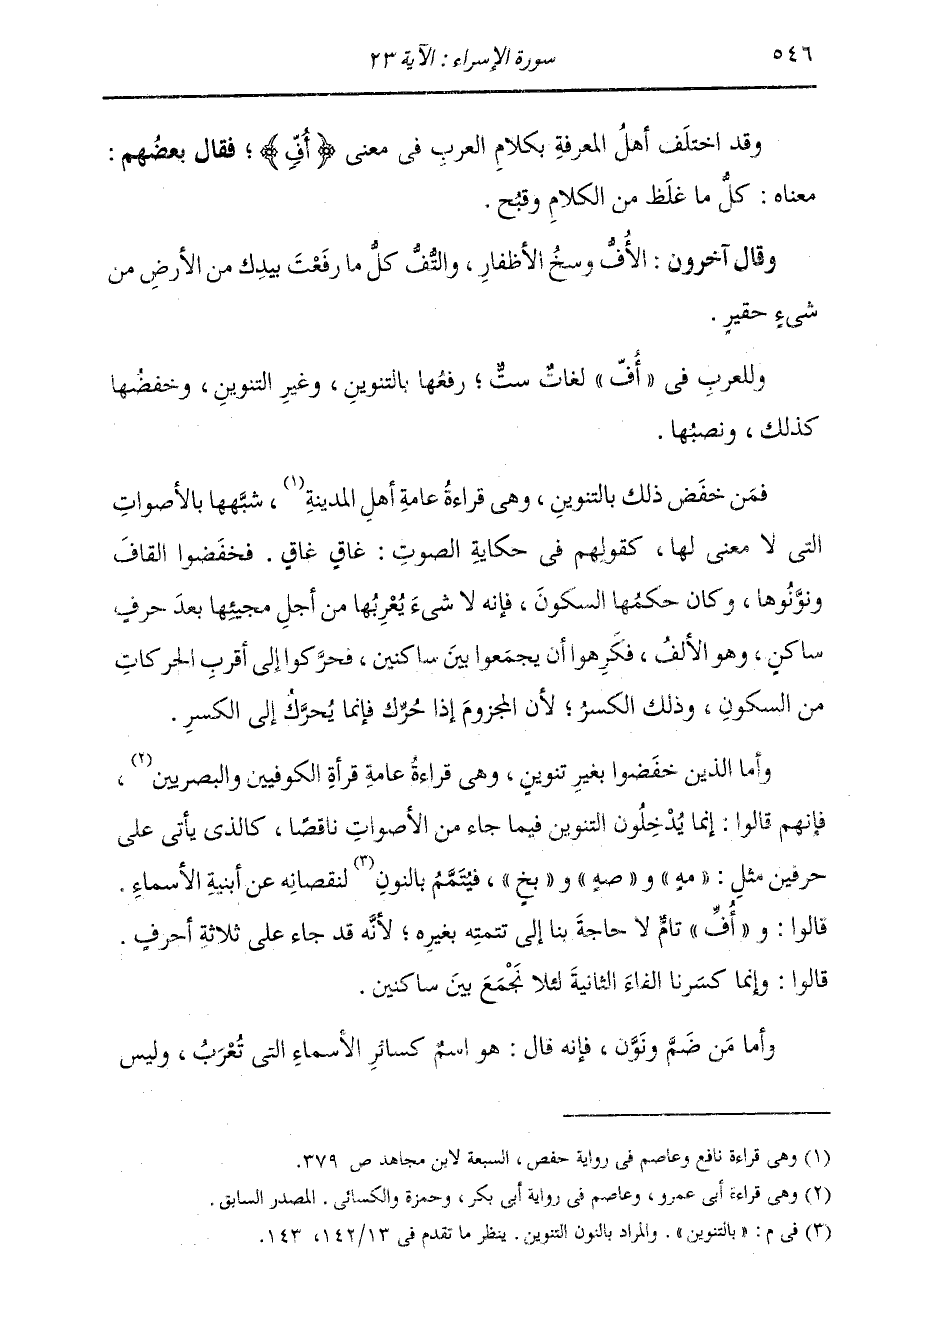 ٥٤٦ سورة الإسراء : الآية ٢٣
وقد اختلَف أهلُ المعرفةِ بكلامِ العربِ فى معنى ﴿ أُفٍّ ﴾ ؛ فقال بعضُهم :
معناه : كلُّ ما غلَظ من الكلامِ وقبُح .
وقال آخرون : الأُفُّ وسخُ الأظفارِ ، والتُّفُّ كلُّ ما رفَعْتَ بيدِك من الأرضِ من
شىءٍ حقيرٍ .
وللعربِ فى « أُفّ » لغاتٌ ستٌّ ؛ رفعُها بالتنوينِ ، وغيرِ التنوينِ ، وخفضُها
كذلك ، ونصبُها .
فمَن خفَض ذلك بالتنوينِ ، وهى قراءةُ عامةِ أهلِ المدينةِ(١) ، شبَّهها بالأصواتِ
التى لا معنى لها ، كقولِهم فى حكايةِ الصوتِ : غاقٍ غاقٍ . فخفَضوا القافَ
ونوَّنُوها ، وكان حكمُها السكونَ ، فإنه لا شىءَ يُعْرِبُها من أجلِ مجيئِها بعدَ حرفٍ
ساكنٍ ، وهو الألفُ ، فكَرِهوا أن يجمَعوا بينَ ساكنين ، فحرَّكوا إلى أقربِ الحركاتِ
من السكونِ ، وذلك الكسرُ ؛ لأن المجزومَ إذا حُرِّك فإنما يُحرَّكُ إلى الكسرِ .
وأما الذين خفَضوا بغيرِ تنوينٍ ، وهى قراءةُ عامةِ قرأةِ الكوفيين والبصريين(٢) ،
فإنهم قالوا : إنما يُدْخِلُون التنوين فيما جاء من الأصواتِ ناقصًا ، كالذى يأتى على
حرفين مثلِ : « مهٍ » و « صهٍ » و « بخٍ » ، فيُتَمَّمُ بالنونِ(٣) لنقصانِه عن أبنيةِ الأسماءِ .
قالوا : و « أُفِّ » تامٌّ لا حاجةَ بنا إلى تتمتِه بغيرِه ؛ لأنَّه قد جاء على ثلاثةِ أحرفٍ .
قالوا : وإنما كسَرنا الفاءَ الثانيةَ لئلا نَجْمَعَ بينَ ساكنين .
وأما مَن ضَمَّ ونَوَّن ، فإنه قال : هو اسمٌ كسائرِ الأسماءِ التى تُعْرَبُ ، وليس
(١) وهى قراءة نافع وعاصم فى رواية حفص ، السبعة لابن مجاهد ص ٣٧٩.
(٢) وهى قراءة أبى عمرو ، وعاصم فى رواية أبى بكر ، وحمزة والكسائى . المصدر السابق .
(٣) فى م : « بالتنوين » . والمراد بالنون التنوين . ينظر ما تقدم فى ١٤٢/١٣، ١٤٣.